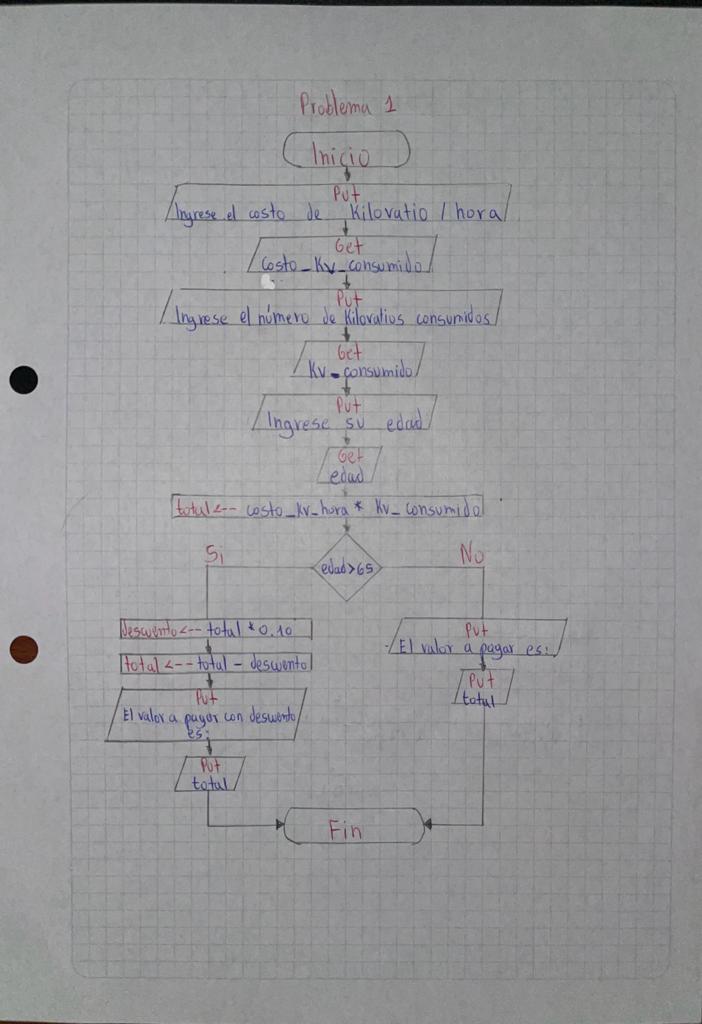 Problema 1
Inicio
Put
Ingrese el costo de Kilovatio / hora
Get
Costo_Kv_consumido
Put
Ingrese el número de Kilovatios consumidos
Get
Kv_consumido
Put
Ingrese su edad
Get
edad
total <-- costo_Kv_hora * Kv_consumido
edad>65
Si
No
descuento <-- total * 0.10
total <-- total - descuento
Put
El valor a pagar con descuento
es:
Put
total
Put
El valor a pagar es:
Put
total
Fin